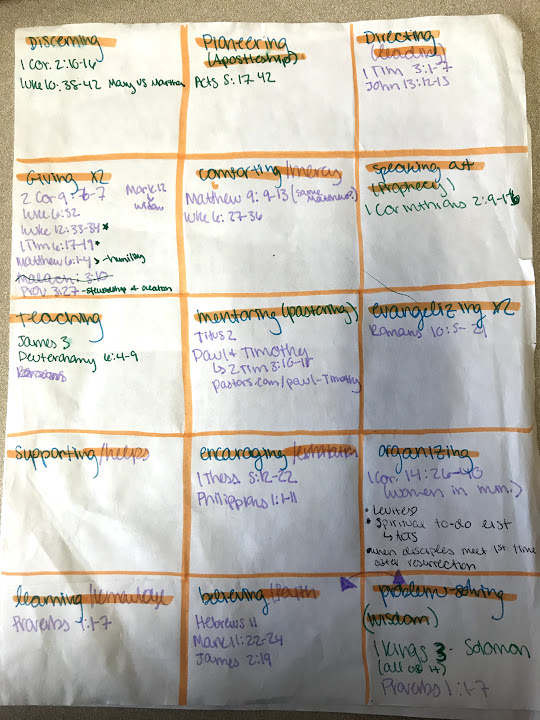 Discerning
1 Cor. 2:10-16
Luke 10:38-42 Mary vs Martha
Pioneering
(Apostleship)
Acts 5:17-42
Directing
(leading)
1 Tim 3:1-7
John 13:12-15
Giving x2
2 Cor 9:6-7
Mark 12
widow
Luke 12:33-34*
1 Tim 6:17-19*
Matthew 6:1-4 > -humility
malachi 3:10
Prov. 3:27 -stewardship of creation
comforting/mercy
Matthew 9:9-13 (same
Luke 6:27-36
speaking out
(Prophecy)
1 Corinthians 2:9-16
teaching
James 3
Deuteronomy 6:4-9
Romans
mentoring (pastoring)
Titus 2
Paul + Timothy
↳ 2 Tim 3:10-17
pastors.com/paul-Timothy
evangelizing x2
Romans 10:5-21
supporting/helps
encouraging/exhortation
1 Thess 5:12-22
Philippians 1:1-11
organizing
1 Cor. 14:26-40
(women in min.)
• Levites
• Spiritual to-do list
↳ Acts
when disciples meet 1st time
after resurrection
learning/knowledge
Proverbs 1:1-7
believing/faith
Hebrews 11
Mark 11:22-24
James 2:19
problem-solving
(wisdom)
1 Kings 3 - Solomon
(all of it)
Proverbs 1:1-7